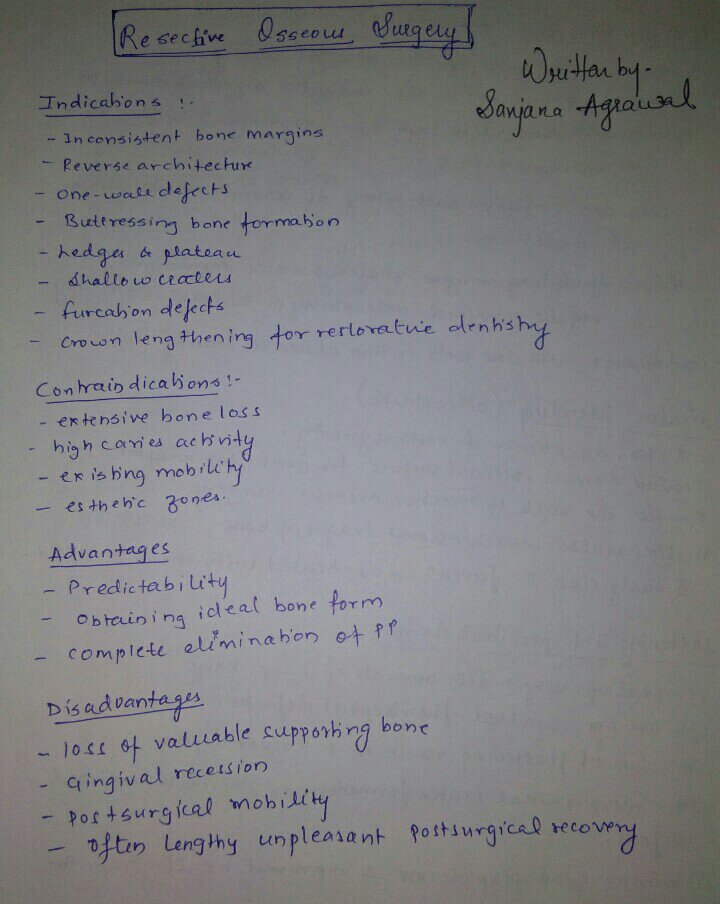 Resective Osseous Surgery
Written by-
Sanjana Agrawal
Indications :-
- Inconsistent bone margins
- Reverse architecture
- One-wall defects
- Buttressing bone formation
- hedges & plateau
- Shallow craters
- furcation defects
- crown lengthening for restorative dentistry
Contraindications :-
- extensive bone loss
- high caries activity
- existing mobility
- esthetic zones.
Advantages
- Predictability
- Obtaining ideal bone form
- complete elimination of PP
Disadvantages
- loss of valuable supporting bone
- Gingival recession
- Postsurgical mobility
- Often lengthy unpleasant postsurgical recovery